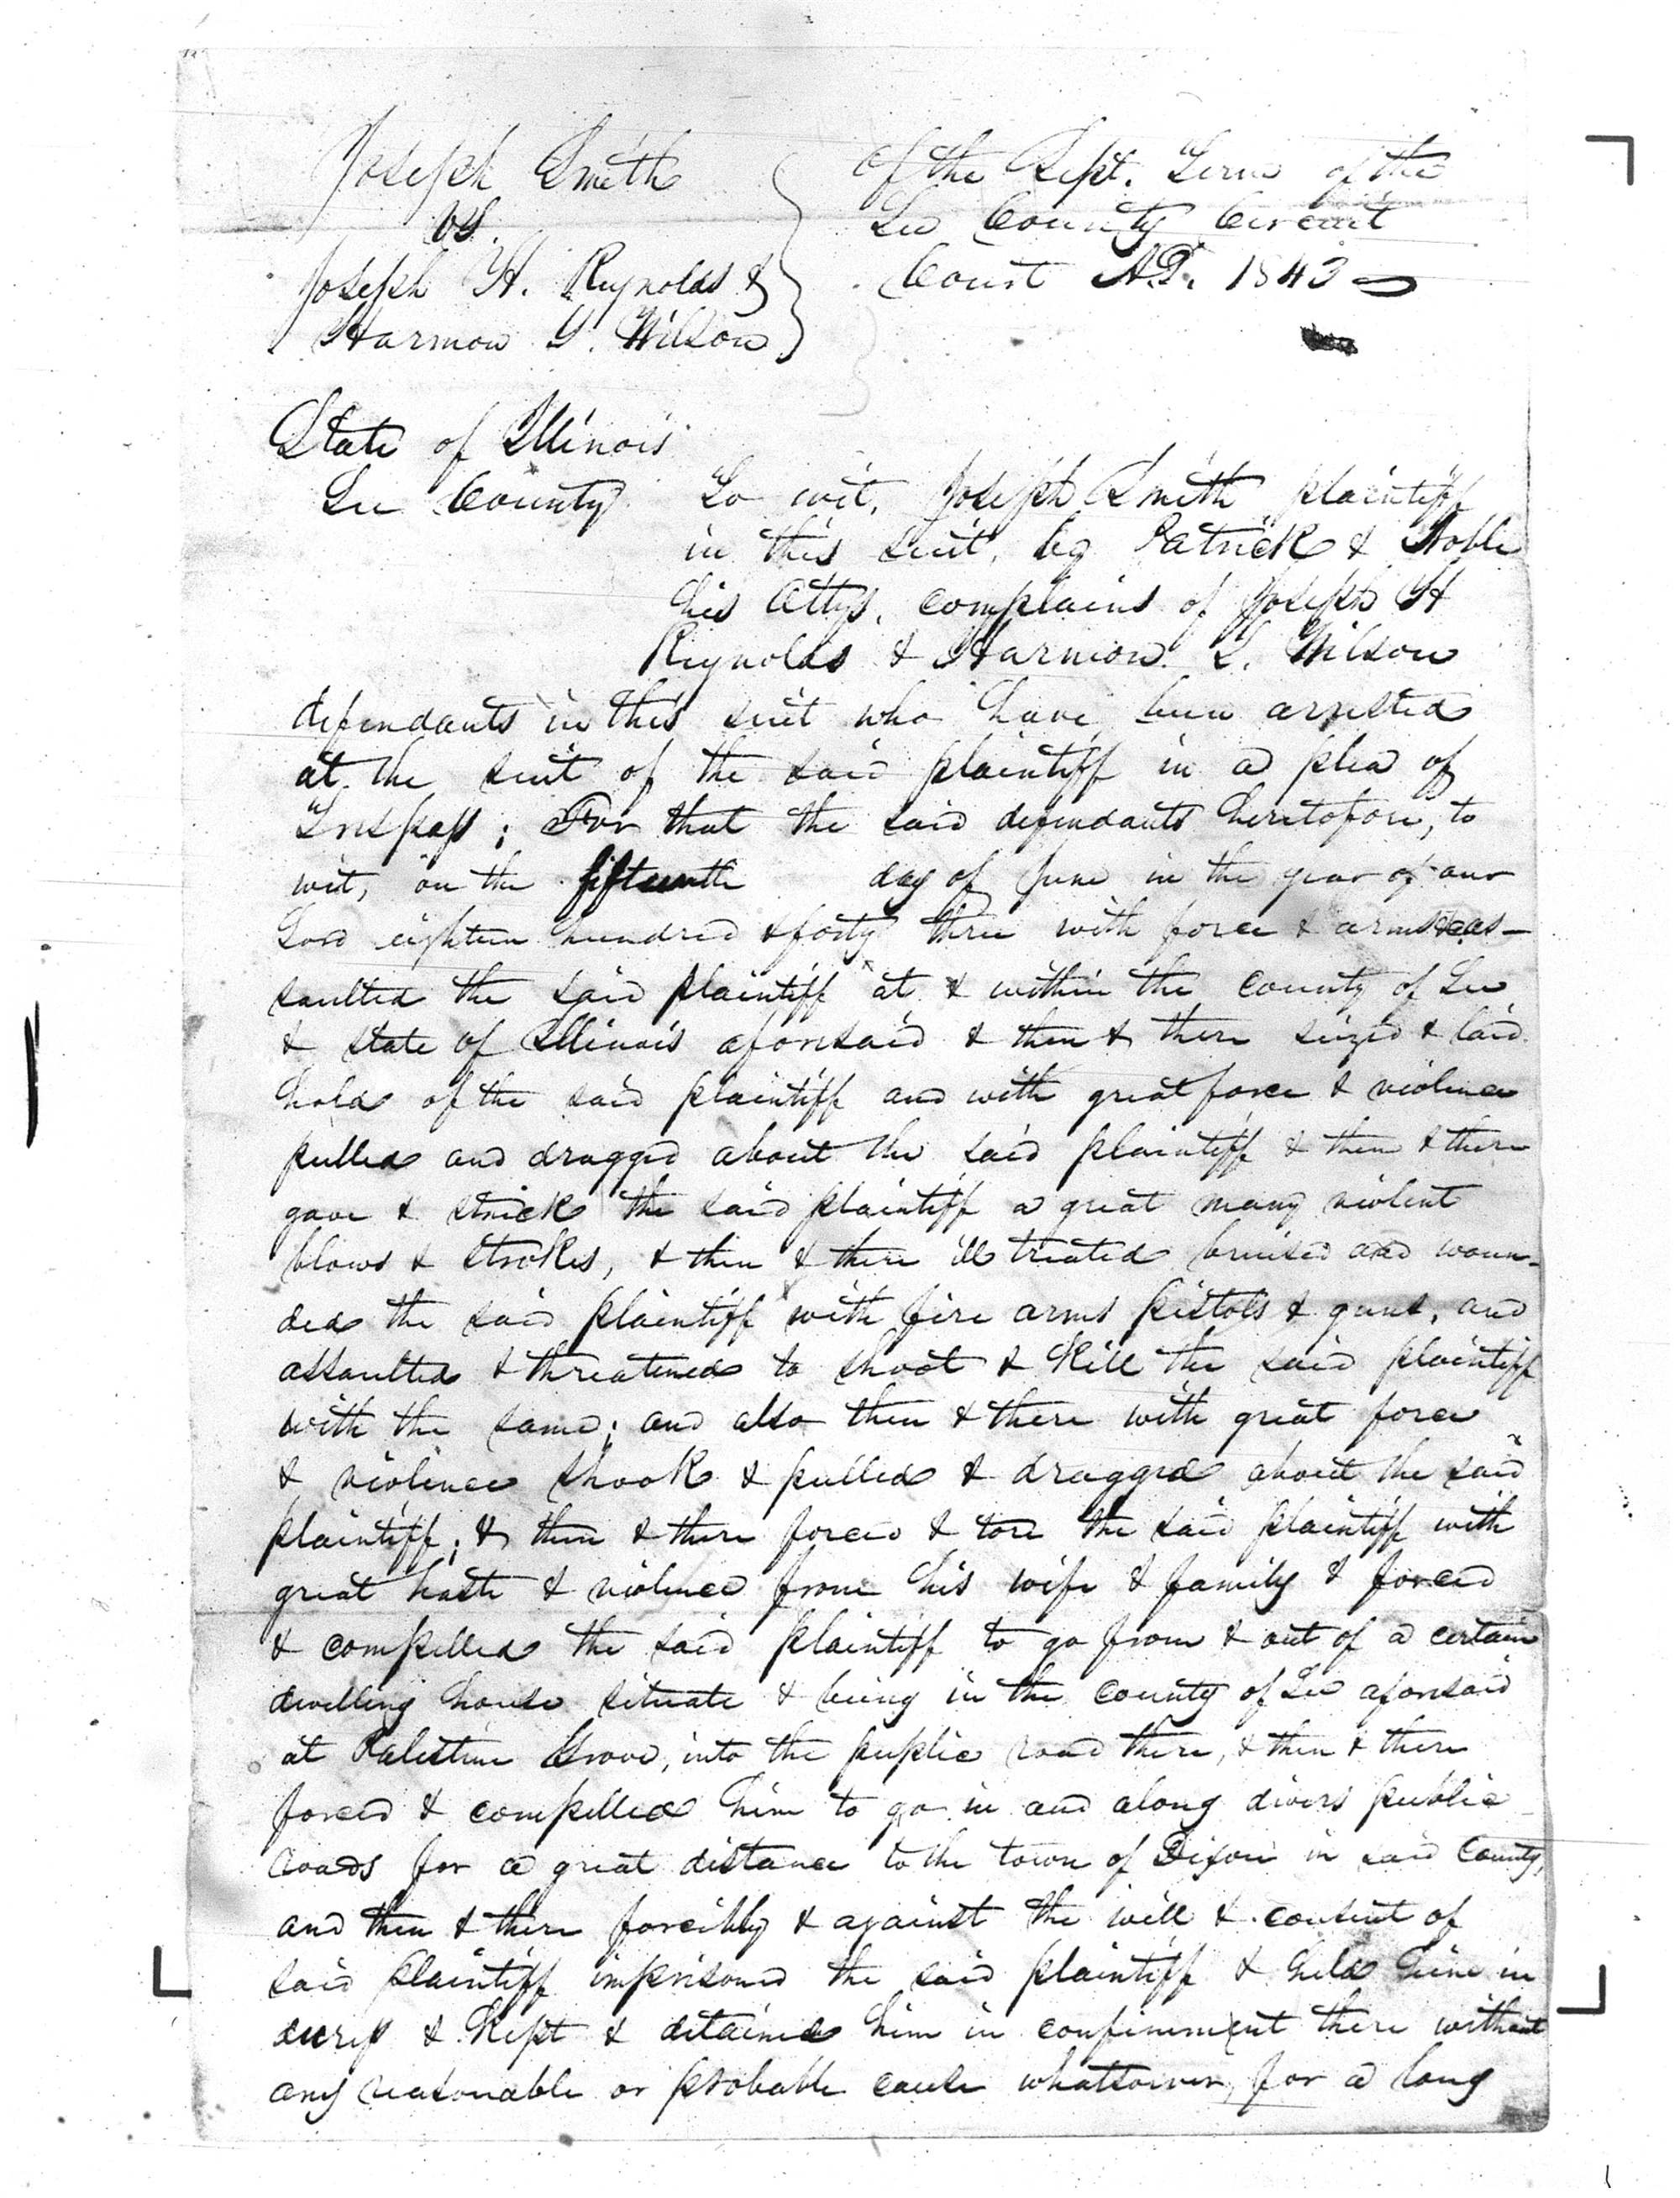 Joseph Smith
vs.
Joseph H. Reynolds &
Harmon T. Wilson
Of the Sept. Term of the
Lee County Circuit
Court A.D. 1843
State of Illinois
Lee County To wit, Joseph Smith plaintiff
in this suit, by Patrick & Noble
his Attys, complains of Joseph H
Reynolds & Harmon T. Wilson
defendants in this suit who have been arrested
at the suit of the said plaintiff in a plea of
Trespass; For that the said defendants heretofore, to
wit, on the fifteenth day of June in the year of our
Lord eighteen hundred & forty three with force & arms &c as-
saulted the said plaintiff at & within the county of Lee
& state of Illinois aforesaid & then & there seized & laid
hold of the said plaintiff and with great force & violence
pulled and dragged about the said plaintiff & then & there
gave & struck the said plaintiff a great many violent
blows & strokes, & then & there ill treated bruised and woun-
ded the said plaintiff with fire arms pistols & guns, and
assaulted & threatened to shoot & kill the said plaintiff
with the same; and also then & there with great force
& violence shook & pulled & dragged about the said
plaintiff; & then & there forced & tore the said plaintiff with
great haste & violence from his wife & family & forced
& compelled the said plaintiff to go from & out of a certain
dwelling house situate & being in the county of Lee aforesaid
at Palestine Grove, into the puplic road there, & then & there
forced & compelled him to go in and along divers public
roads for a great distance to the town of Dixon in said County,
and then & there forcibly & against the will & consent of
said plaintiff imprisoned the said plaintiff & held him in
duress & kept & detained him in confinement there without
any reasonable or probable cause whatsoever, for a long